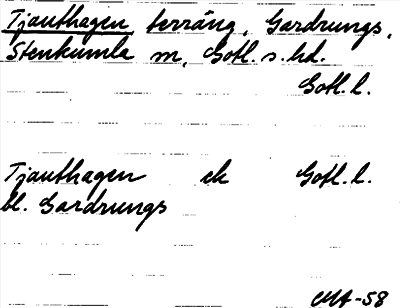 Tjauthagen, terräng, Gardrungs,
Stenkumla sn, Gotl. s. hd.
Gotl. l.
Tjauthagen ek Gotl. l.
bl. Gardrungs
-58